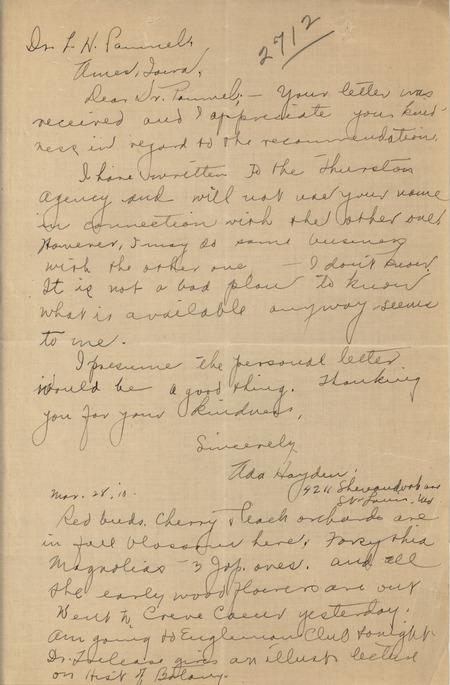 2712
Dr. L. H. Pammel,
Ames, Iowa,
Dear Dr. Pammel; – Your letter was
received and I appreciate your kind-
ness in regard to the recommendation.
I have written to the Thurston
agency and will not use your name
in connection with the other one.
However, I may do some business
with the other one – I don't know.
It is not a bad plan to know
what is available anyway seems
to me.
I presume the personal letter
would be a good thing. Thanking
you for your kindness,
Sincerely
Ada Hayden.
4211 Shenandoah ave
St. Louis, Mo
Mar. 28, '10.
Red buds, Cherry & Peach orchards are
in full blossom here, Forsythia
Magnolias – 3 Jap. ones. and all
the early wood flowers are out
Went to Creve Coeur yesterday.
Am going to Engleman Club tonight
Dr. Trelease gives an illust. lecture
on Hist of Botany.